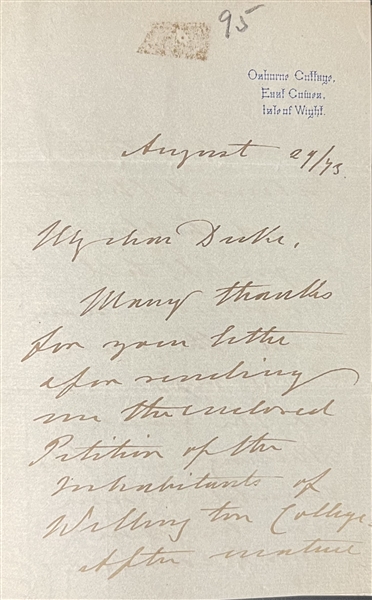 95
Osborne Cottage,
East Cowes,
Isle of Wight.
August 29/73.
My dear Duke,
Many thanks
for your letter
& for sending
me the enclosed
Petition of the
inhabitants of
Wellington College.
After mature